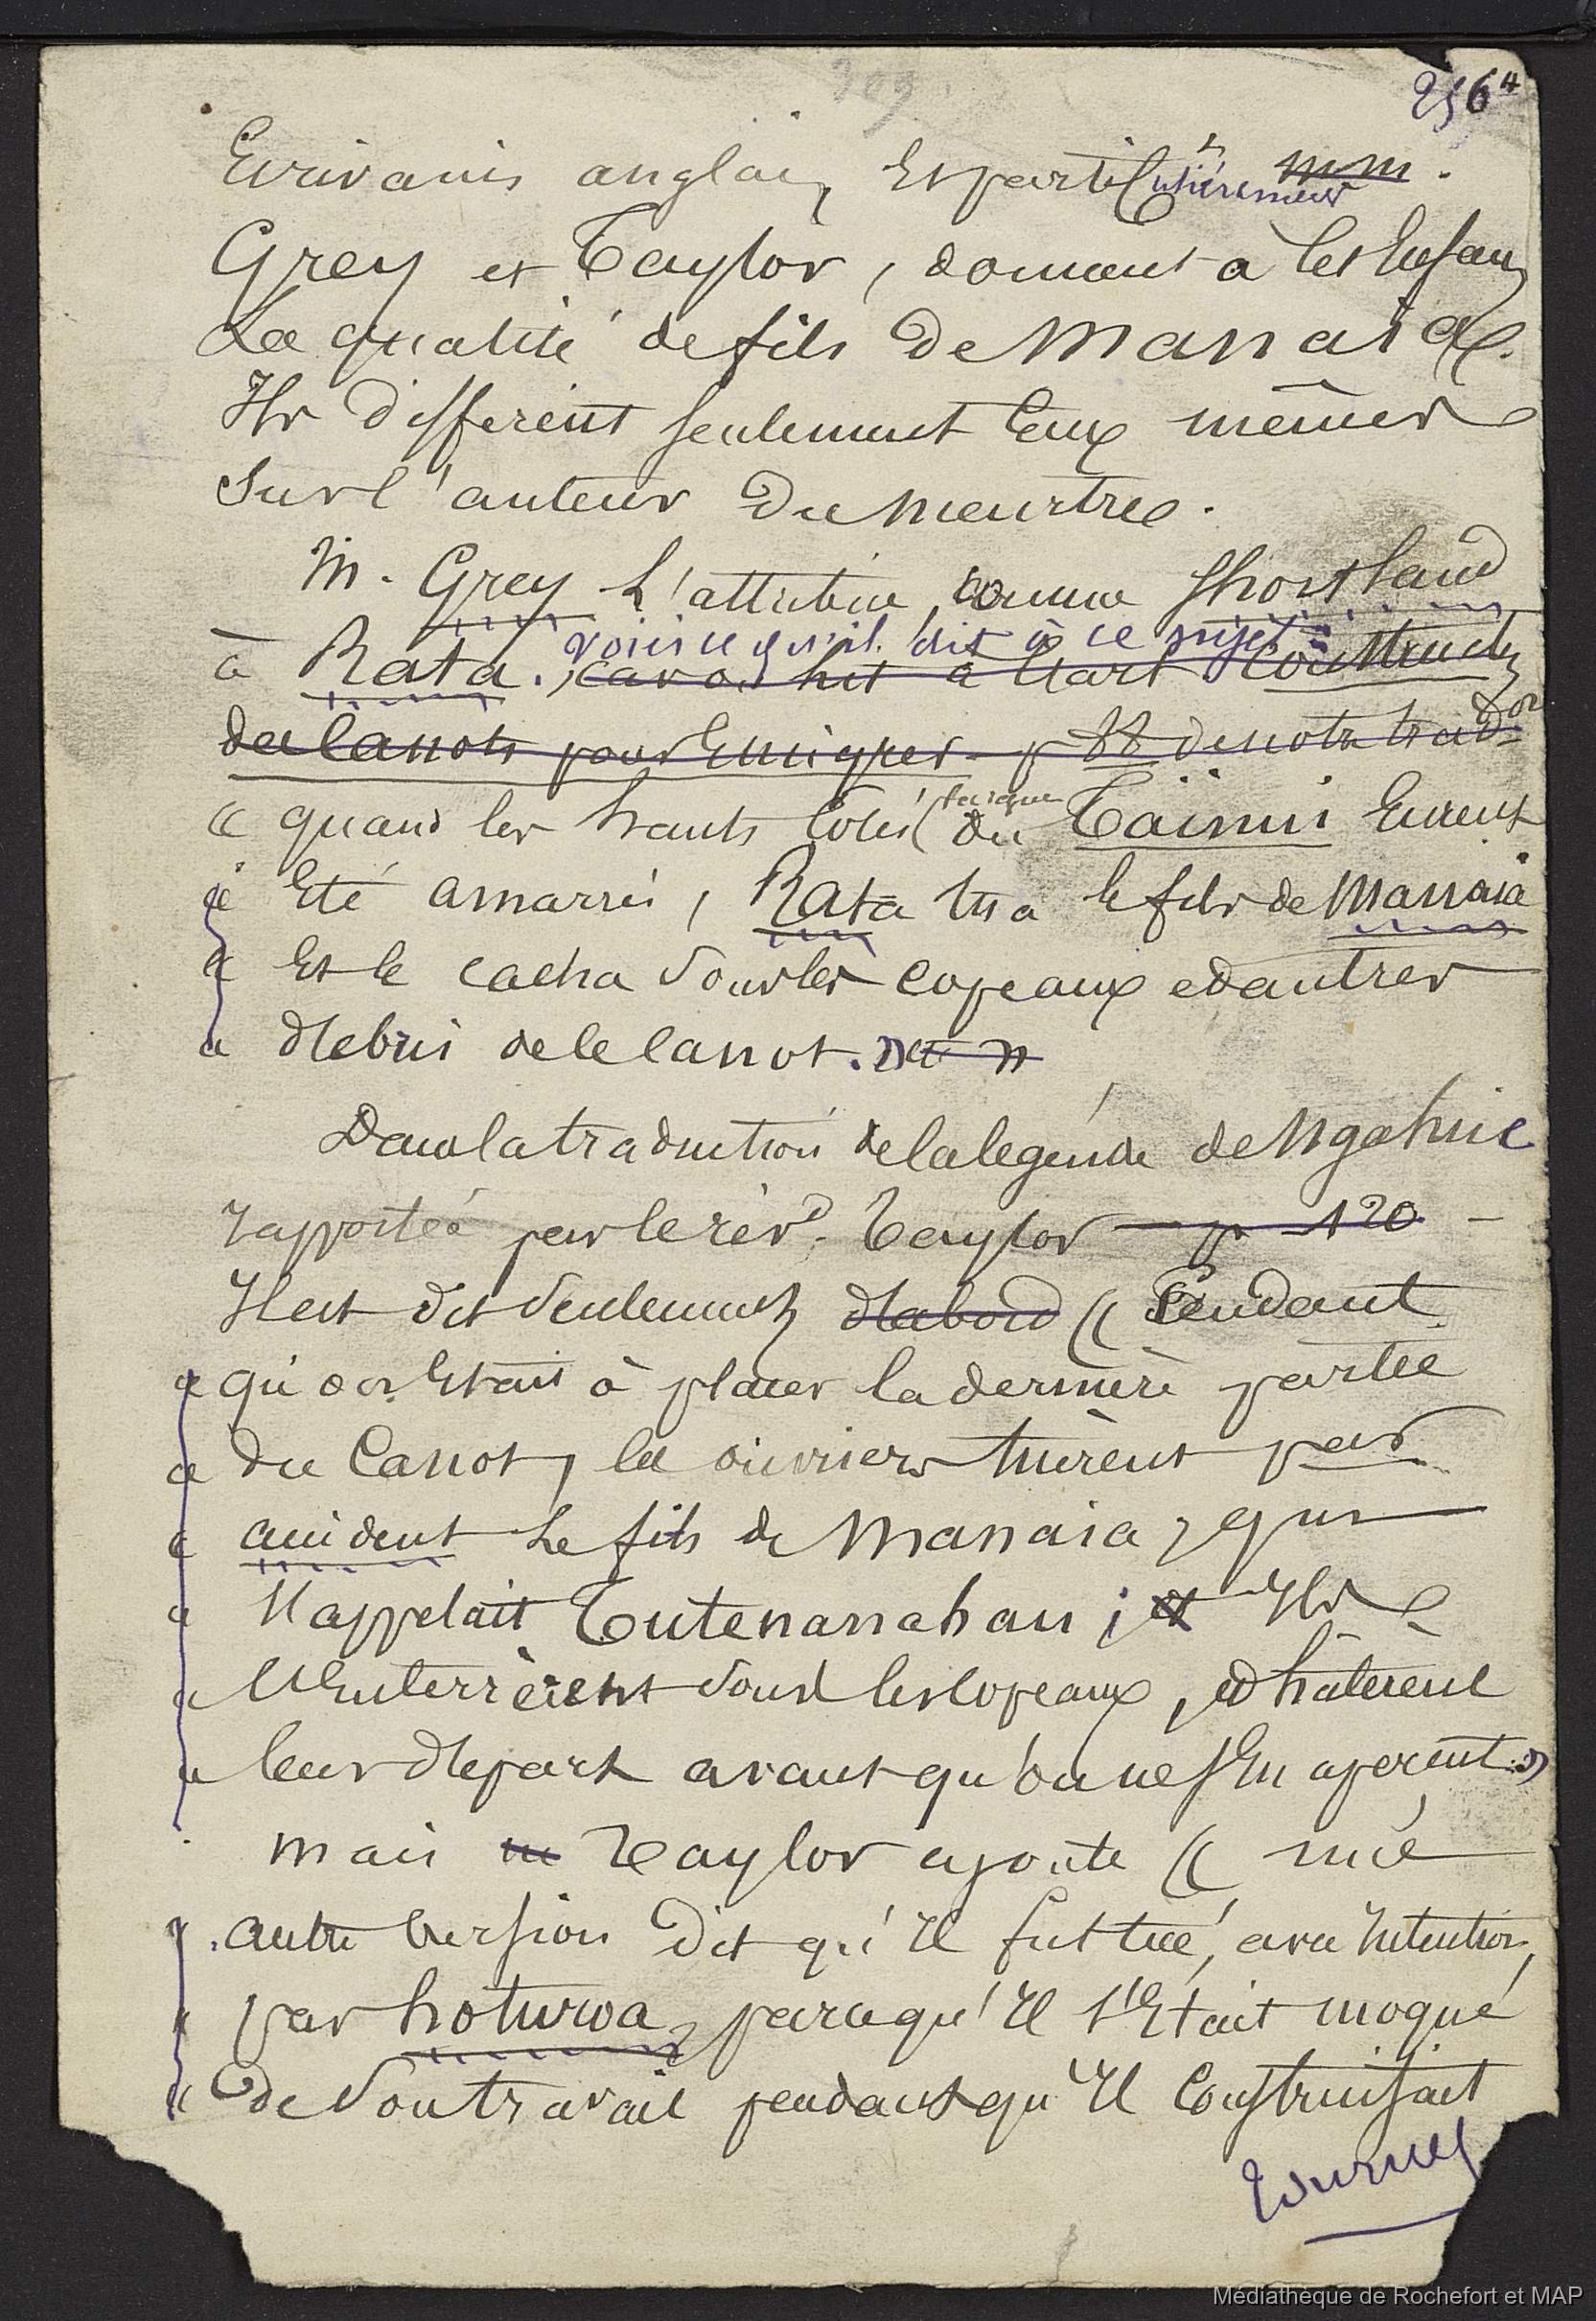 309
256 4
Ecrivains anglais, Et particulièrement mm.
Grey et Taylor, donnent à cet Enfant
La qualité de fils de Manaia.
Ils different seulement Eux mêmes
Sur l'auteur du Meurtre.
M. Grey L'attribue, comme Shortland
à Rata. voici ce qu'il dit à ce sujet :
des Canots pour Emigrer - p 88 de notre trad.on
« quand les hauts Cotés du Tainui Eurent
« Eté amarrés, Rata tua le fils de Manaia
« Et le cacha Sous les copeaux et d'autres
« débris de le Canot. »
Dans la traduction de la legende de Ngahue
rapportée par le rév.d Taylor p 120
Il est dit Seulement d'abord « Pendant
« qu'on Etait à placer la dernière partie
« du Canot, les ouvriers tuèrent par
« accident Le fils de Manaia, qui
« s'appelait Tutenanahau ; et Ils
« L'Enterrèrent Sous les Copeaux, et hâtèrent
« leur départ avant qu'on ne s'En aperçut. »
mais Taylor ajoute « une
« autre Version dit qu'Il fut tué, avec Intention,
« par hoturoa, parcequ'Il s'Etait moqué
« de Son travail pendant qu'Il Construisait
Tournez
Médiathèque de Rochefort et MAP